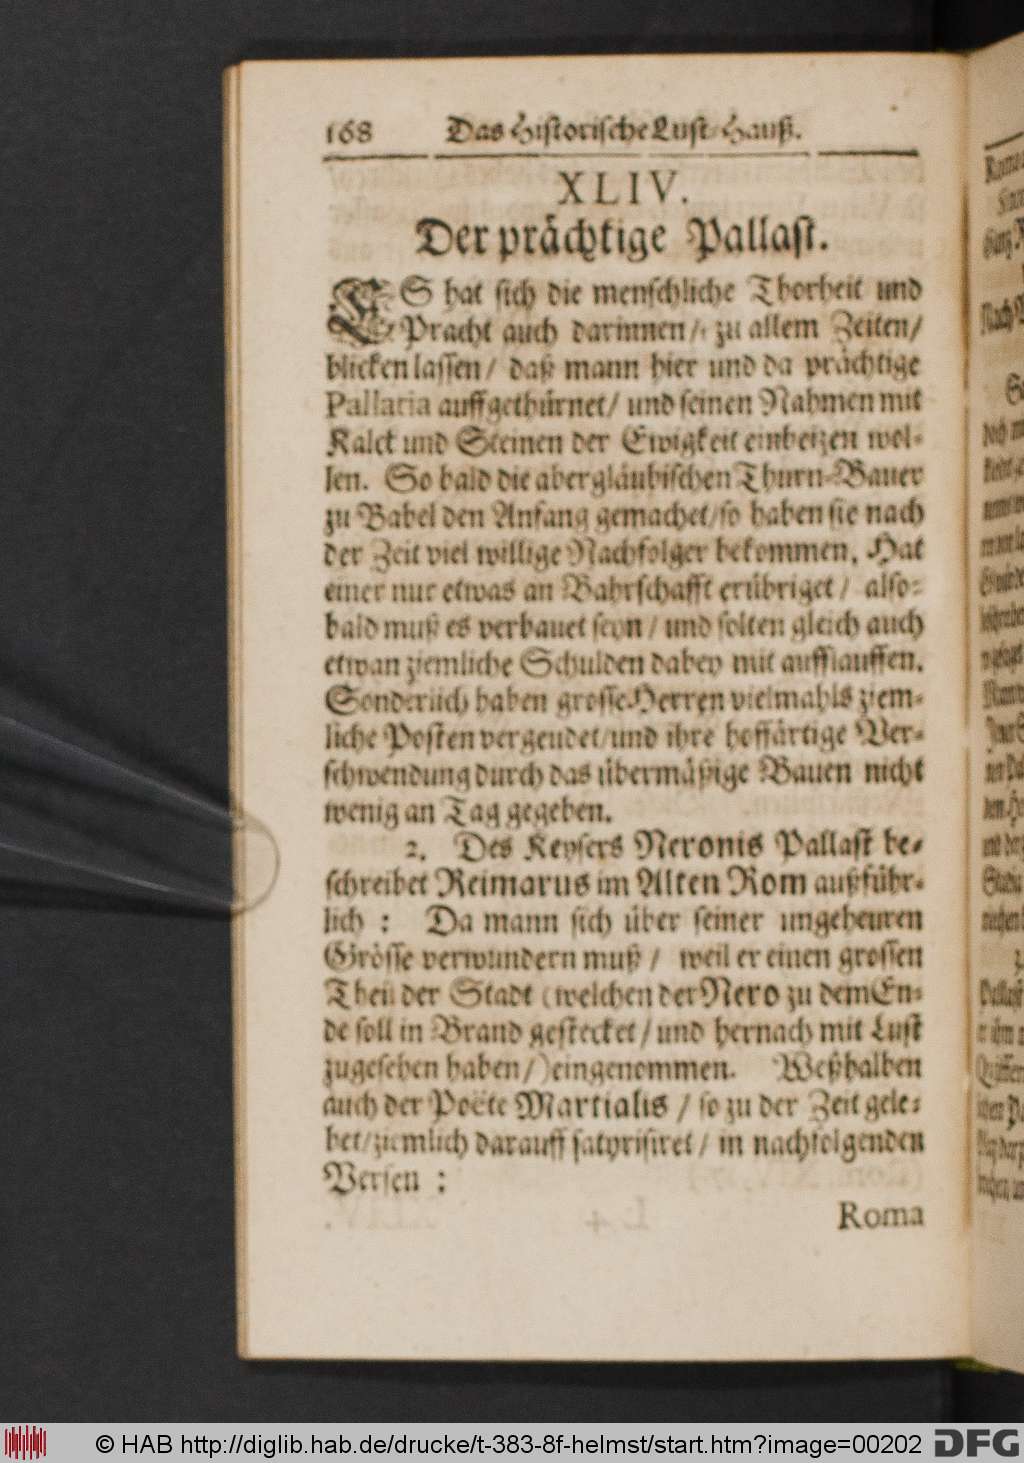 168 Das Historische Lust-Hauß.
XLIV.
Der prächtige Pallast.
ES hat sich die menschliche Thorheit und
Pracht auch darinnen / zu allem Zeiten /
blicken lassen / daß mann hier und da prächtige
Pallatia auffgethürnet / und seinen Nahmen mit
Kalck und Steinen der Ewigkeit einbeizen wol-
len. So bald die abergläubischen Thurn-Bauer
zu Babel den Anfang gemachet / so haben sie nach
der Zeit viel willige Nachfolger bekommen. Hat
einer nur etwas an Bahrschafft erübriget / also-
bald muß es verbauet seyn / und solten gleich auch
etwan ziemliche Schulden dabey mit aufflauffen.
Sonderlich haben grosse Herren vielmahls ziem-
liche Posten vergeudet / und ihre hoffärtige Ver-
schwendung durch das übermäßige Bauen nicht
wenig an Tag gegeben.
2. Des Keysers Neronis Pallast be-
schreibet Reimarus im Alten Rom außführ-
lich : Da mann sich über seiner ungeheuren
Grösse verwundern muß / weil er einen grossen
Theil der Stadt (welchen der Nero zu dem En-
de soll in Brand gestecket / und hernach mit Lust
zugesehen haben /) eingenommen. Weßhalben
auch der Poëte Martialis / so zu der Zeit gele-
bet / ziemlich darauff satyrisiret / in nachfolgenden
Versen :
Roma
© HAB http://diglib.hab.de/drucke/t-383-8f-helmst/start.htm?image=00202 DFG